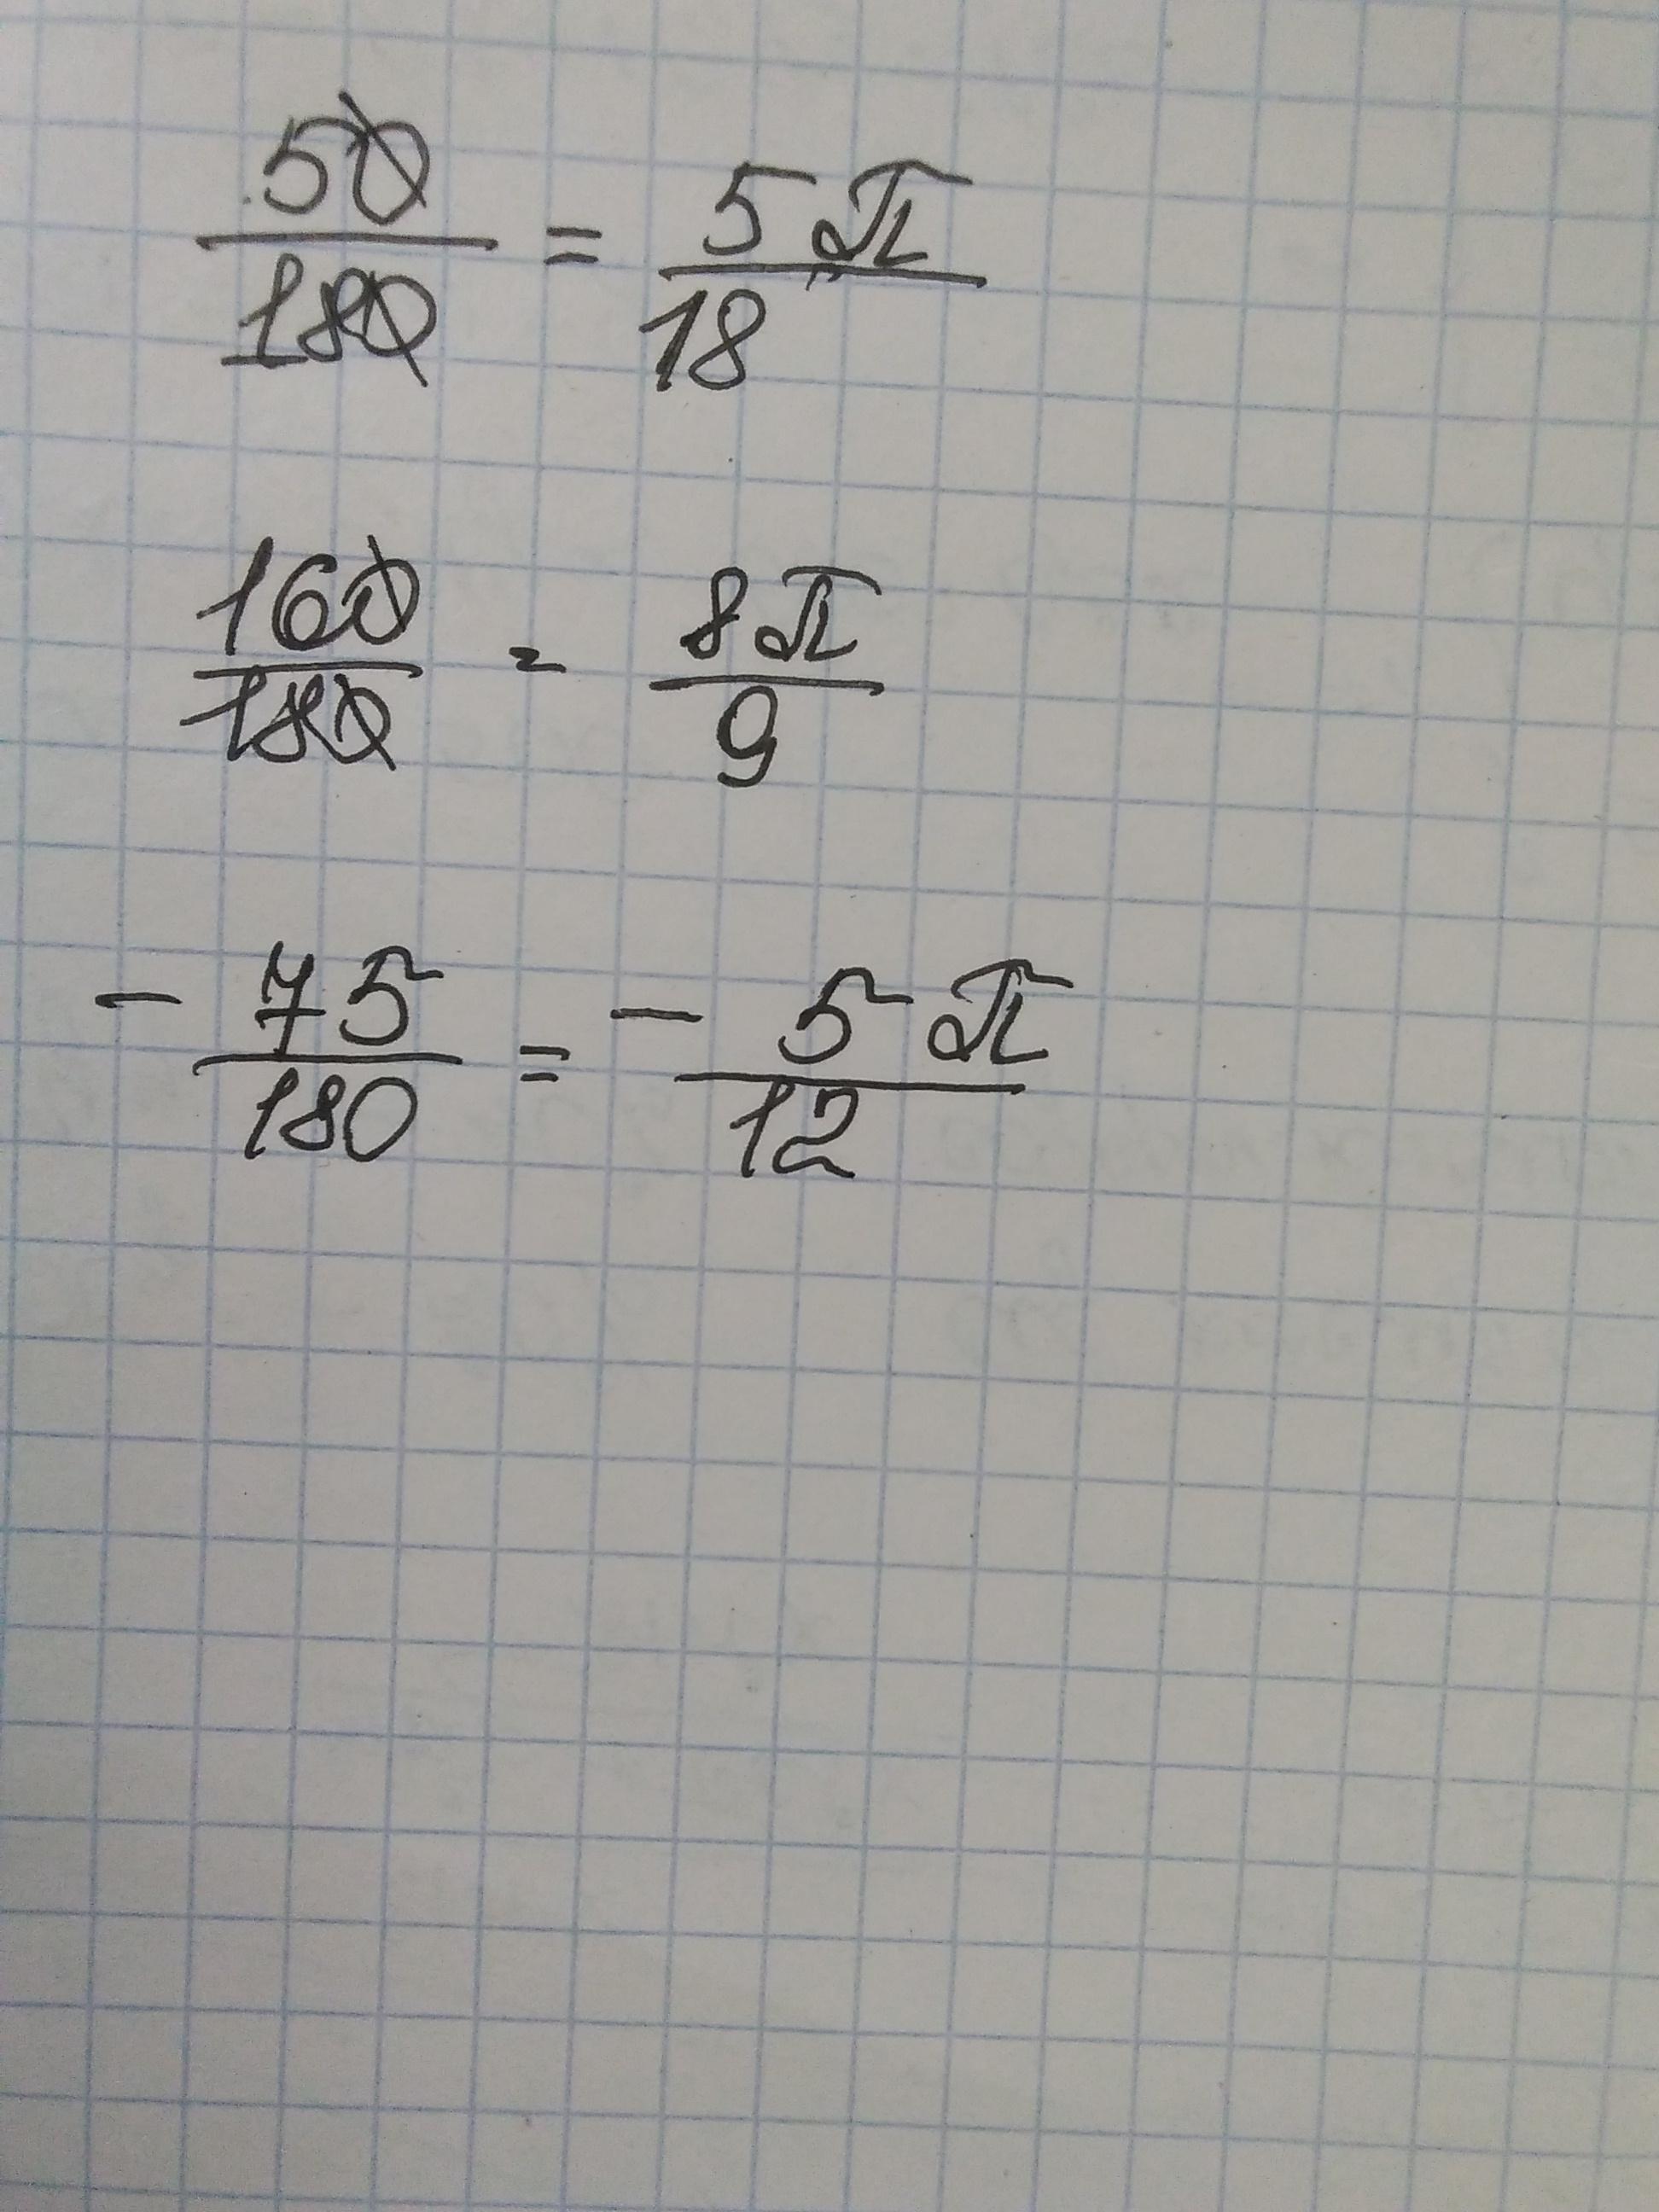 50/180 = 5π/18
160/180 = 8π/9
- 75/180 = - 5π/12